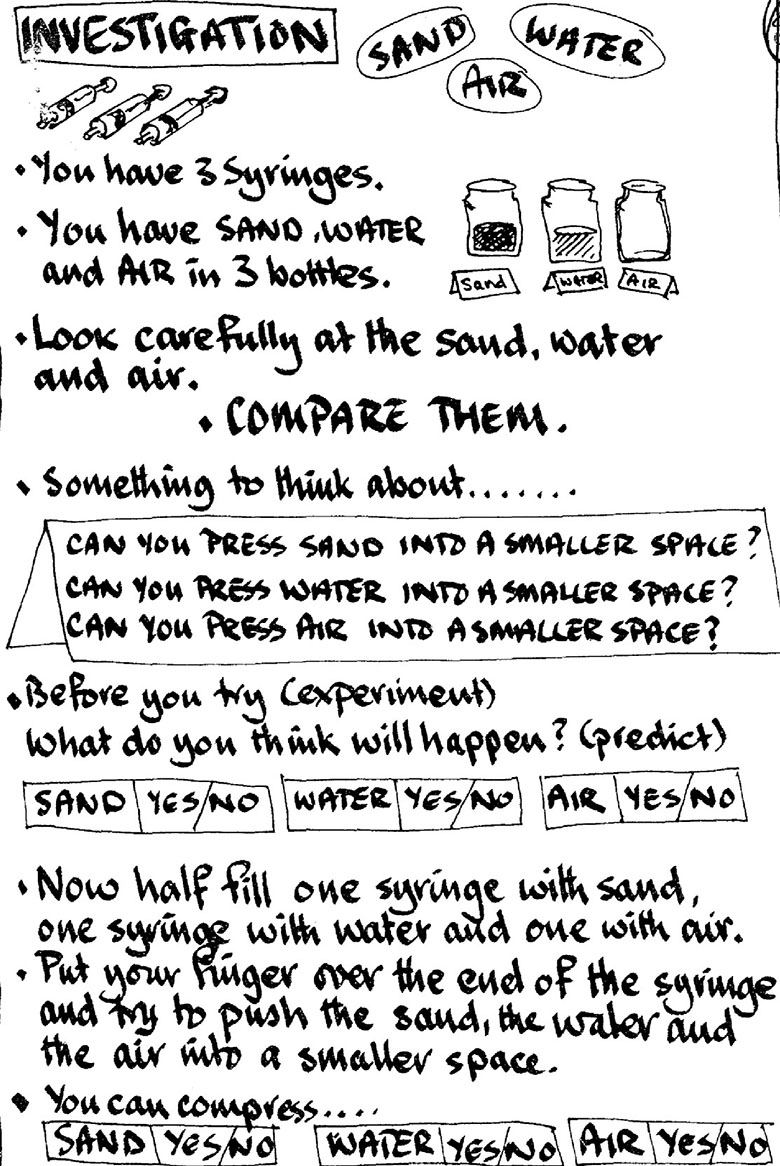 INVESTIGATION
SAND WATER
AIR
• You have 3 Syringes.
• You have SAND, WATER
and AIR in 3 bottles.
Sand WATER AIR
• Look carefully at the sand, water
and air.
• COMPARE THEM.
• Something to think about.......
CAN YOU PRESS SAND INTO A SMALLER SPACE?
CAN YOU PRESS WATER INTO A SMALLER SPACE?
CAN YOU PRESS AIR INTO A SMALLER SPACE?
• Before you try (experiment)
What do you think will happen? (predict)
SAND YES/NO WATER YES/NO AIR YES/NO
• Now half fill one syringe with sand,
one syringe with water and one with air.
• Put your finger over the end of the syringe
and try to push the sand, the water and
the air into a smaller space.
• You can compress....
SAND YES/NO WATER YES/NO AIR YES/NO